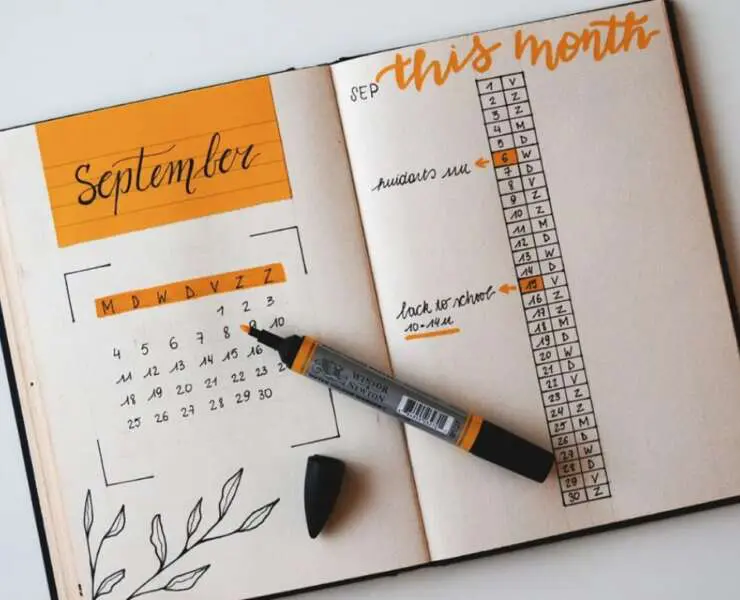 September
M D W D V Z Z
1 2 3
4 5 6 7 8 9 10
11 12 13 14 15 16
18 19 20 21 22 23
25 26 27 28 29 30
WINSOR & NEWTON
SEP this month
1 V
2 Z
3 Z
4 M
5 D
6 W
huidarts
7 D
8 V
9 Z
10 Z
11 M
12 D
13 W
14 D
15 V
back to school
10-14u
16 Z
17 Z
18 M
19 D
20 W
21 D
22 V
23 Z
24 Z
25 M
26 D
27 W
28 D
29 V
30 Z